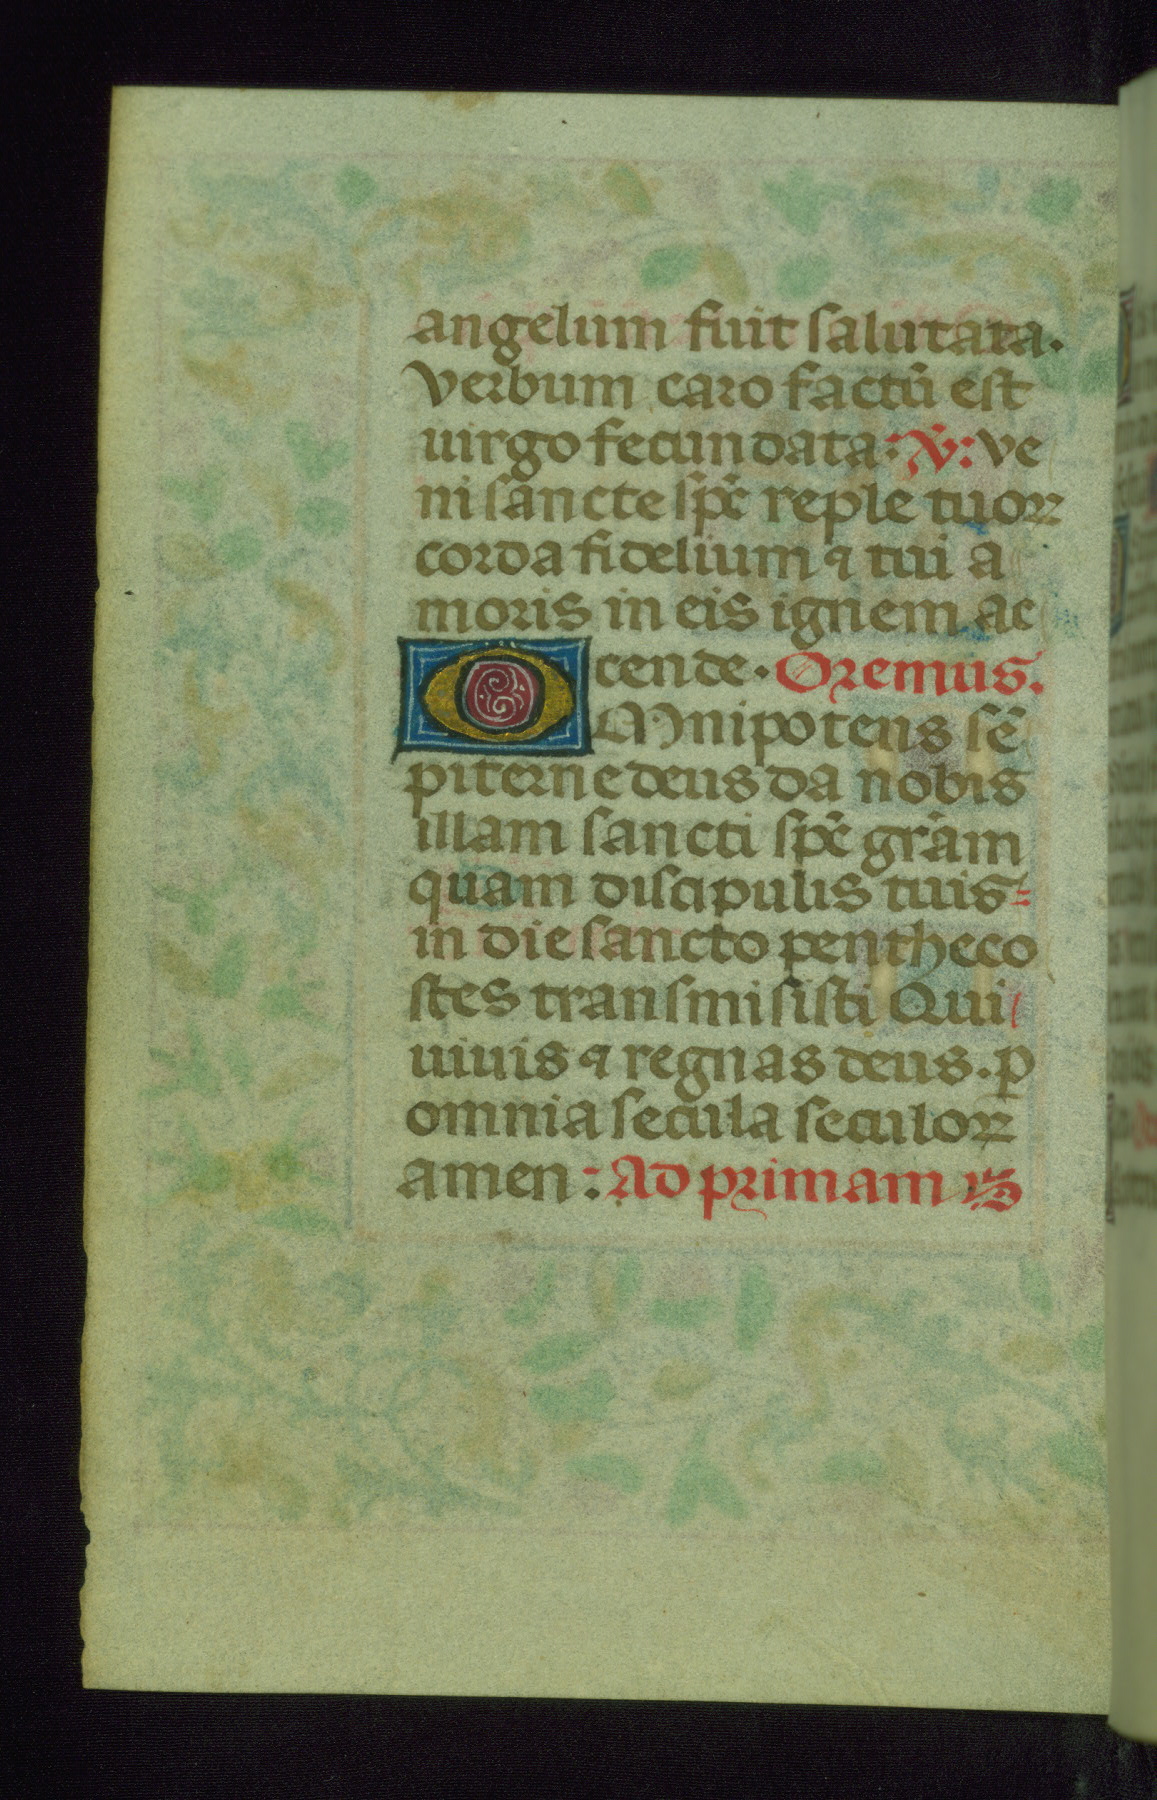 angelum fuit salutata.
Verbum caro factū est
uirgo fecundata: ℣: ve
ni sancte sp̄c reple tuoꝝ
corda fidelium ⁊ tui a
moris in eis ignem ac
cende. Oremus.
OMnipotens sē
piterne deus da nobis
illam sancti sp̄c gr̄am
quam discipulis tuis=
in die sancto pentheco
stes transmisisti Qui
uiuis ⁊ regnas deus. ꝑ
omnia secula seculoꝝ
amen: Ad primam